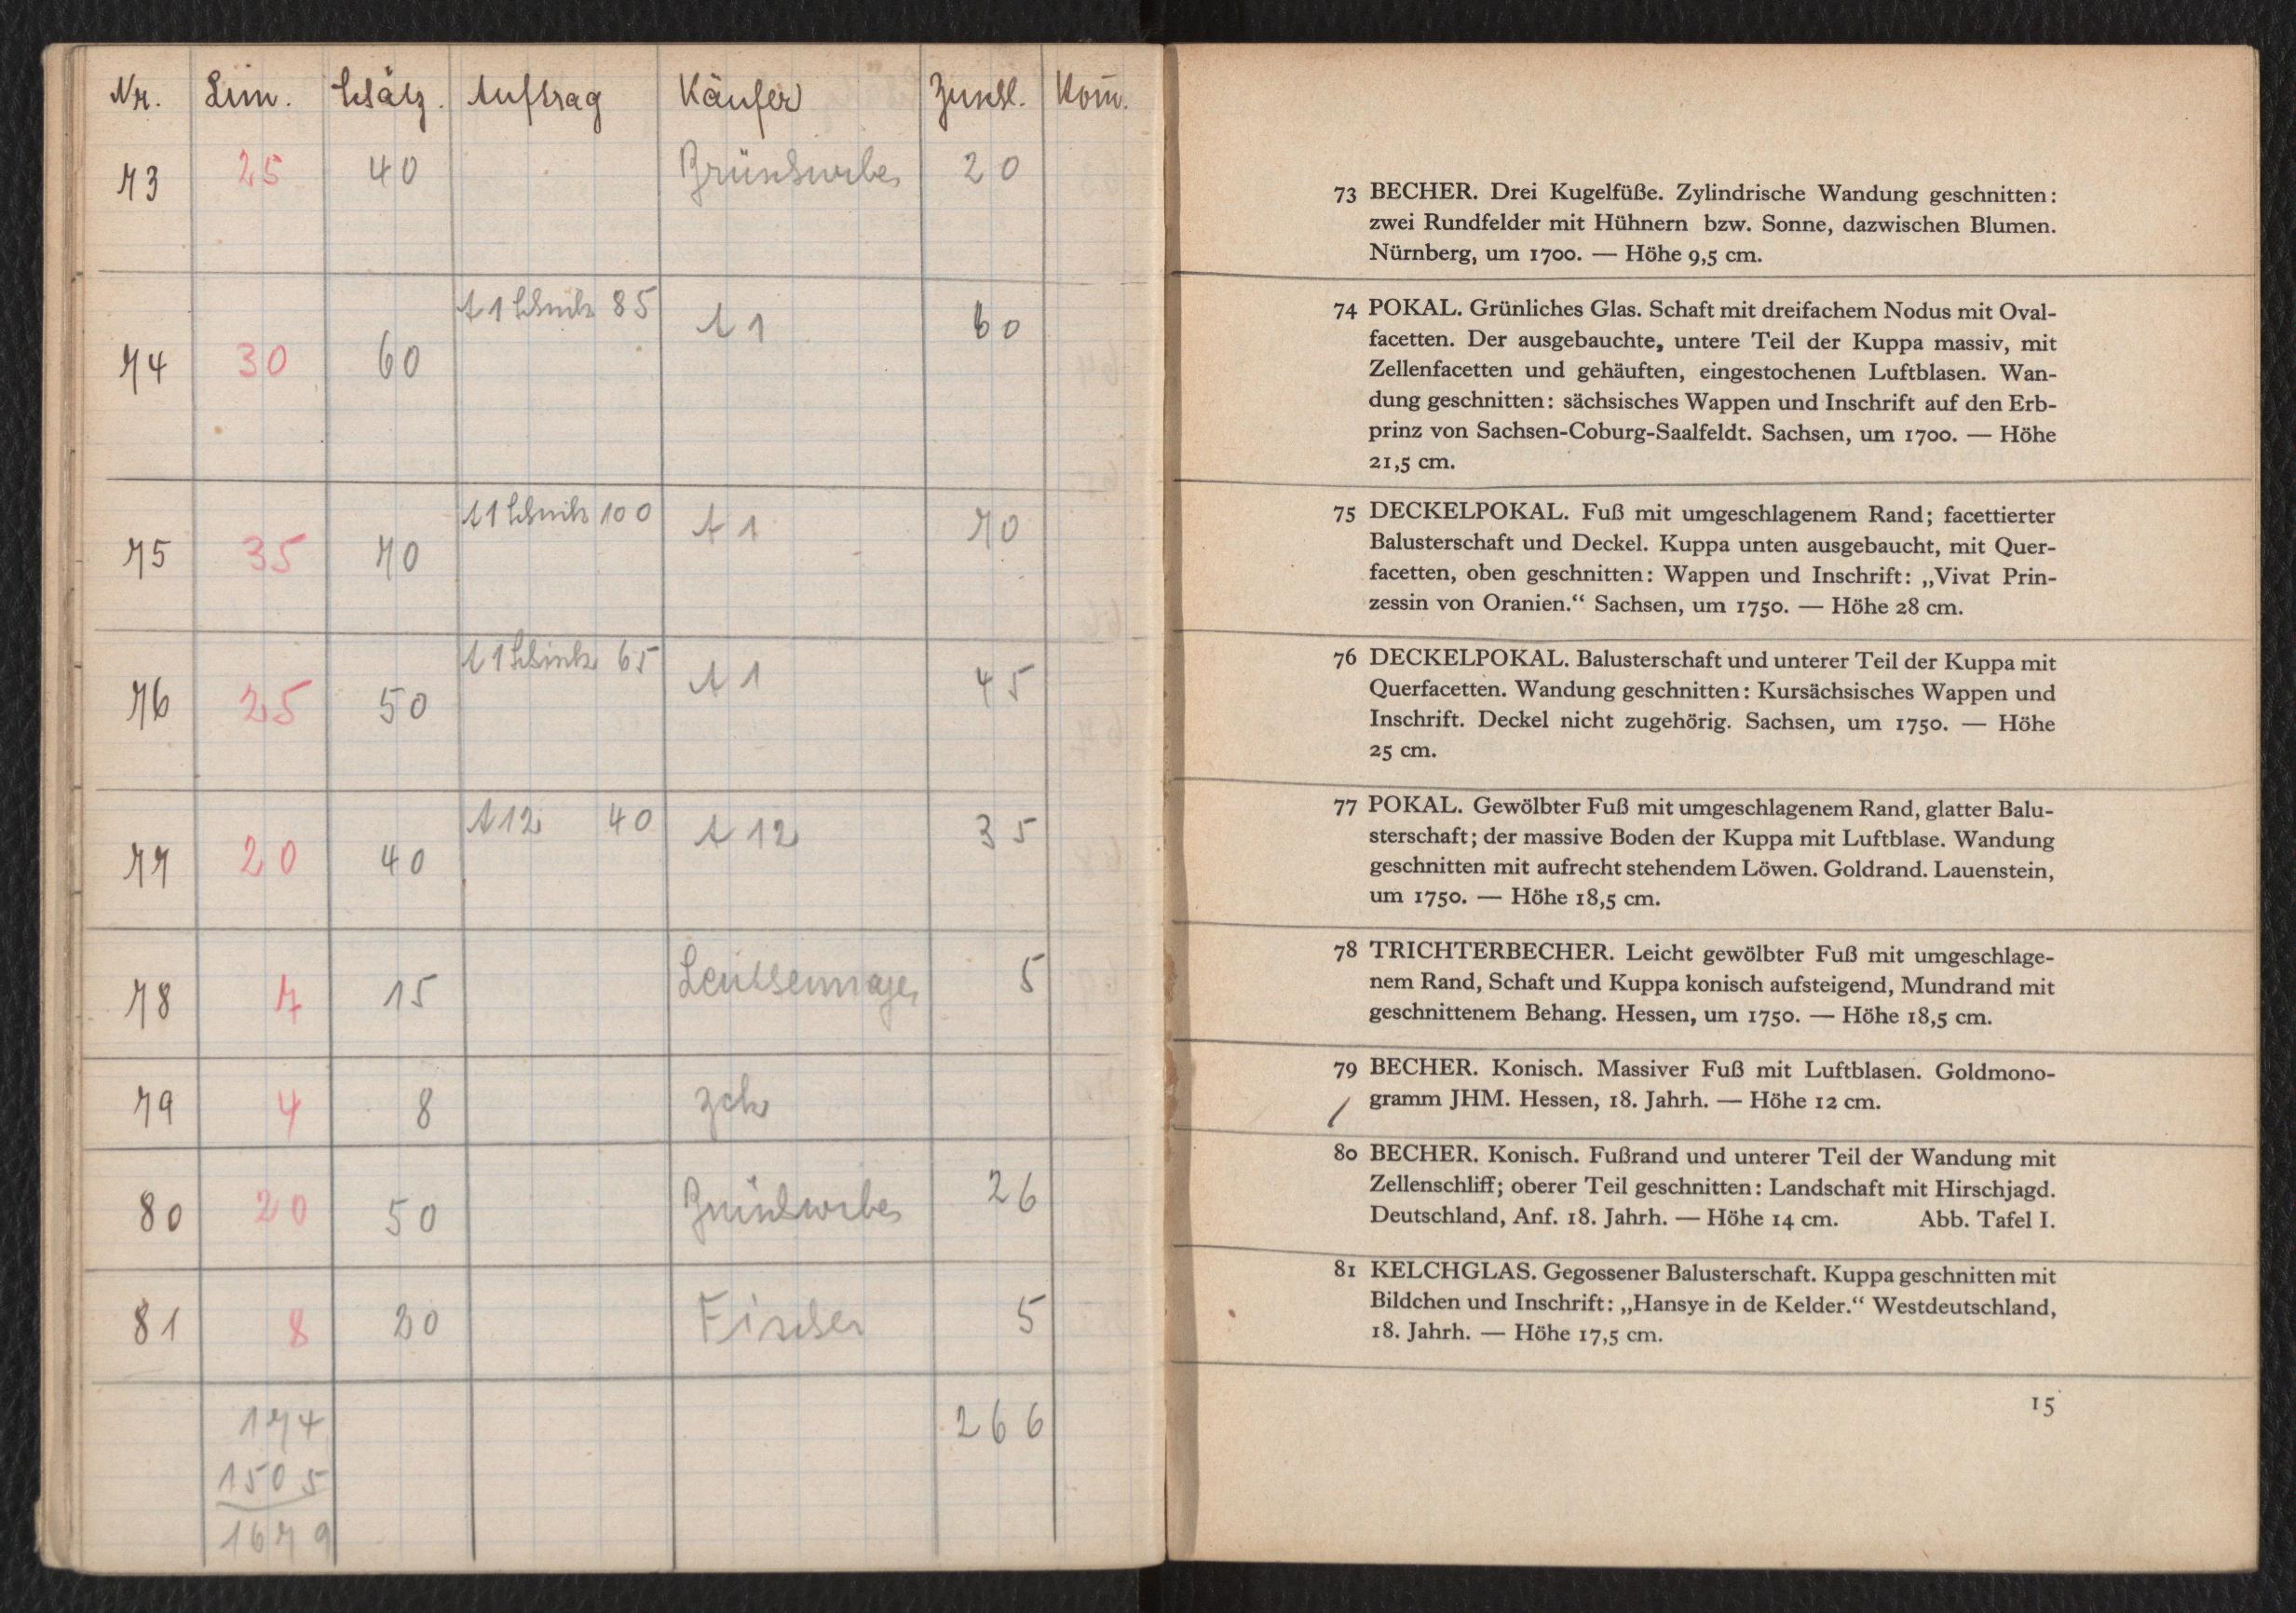 Nr. Lim. Schätz. Auftrag Käufer Zuschl. Kom.
73 25 40 20
74 30 60 A1 85 A1 60
75 35 70 A1 100 A1 70
76 25 50 A1 65 A1 45
77 20 40 A12 40 A12 35
78 7 15 5
79 4 8 zck
80 20 50 26
81 8 20 Fischer 5
174 266
1505
1679
73 BECHER. Drei Kugelfüße. Zylindrische Wandung geschnitten:
zwei Rundfelder mit Hühnern bzw. Sonne, dazwischen Blumen.
Nürnberg, um 1700. — Höhe 9,5 cm.
74 POKAL. Grünliches Glas. Schaft mit dreifachem Nodus mit Oval-
facetten. Der ausgebauchte, untere Teil der Kuppa massiv, mit
Zellenfacetten und gehäuften, eingestochenen Luftblasen. Wan-
dung geschnitten: sächsisches Wappen und Inschrift auf den Erb-
prinz von Sachsen-Coburg-Saalfeldt. Sachsen, um 1700. — Höhe
21,5 cm.
75 DECKELPOKAL. Fuß mit umgeschlagenem Rand; facettierter
Balusterschaft und Deckel. Kuppa unten ausgebaucht, mit Quer-
facetten, oben geschnitten: Wappen und Inschrift: „Vivat Prin-
zessin von Oranien.“ Sachsen, um 1750. — Höhe 28 cm.
76 DECKELPOKAL. Balusterschaft und unterer Teil der Kuppa mit
Querfacetten. Wandung geschnitten: Kursächsisches Wappen und
Inschrift. Deckel nicht zugehörig. Sachsen, um 1750. — Höhe
25 cm.
77 POKAL. Gewölbter Fuß mit umgeschlagenem Rand, glatter Balu-
sterschaft; der massive Boden der Kuppa mit Luftblase. Wandung
geschnitten mit aufrecht stehendem Löwen. Goldrand. Lauenstein,
um 1750. — Höhe 18,5 cm.
78 TRICHTERBECHER. Leicht gewölbter Fuß mit umgeschlage-
nem Rand, Schaft und Kuppa konisch aufsteigend, Mundrand mit
geschnittenem Behang. Hessen, um 1750. — Höhe 18,5 cm.
79 BECHER. Konisch. Massiver Fuß mit Luftblasen. Goldmono-
gramm JHM. Hessen, 18. Jahrh. — Höhe 12 cm.
80 BECHER. Konisch. Fußrand und unterer Teil der Wandung mit
Zellenschliff; oberer Teil geschnitten: Landschaft mit Hirschjagd.
Deutschland, Anf. 18. Jahrh. — Höhe 14 cm. Abb. Tafel I.
81 KELCHGLAS. Gegossener Balusterschaft. Kuppa geschnitten mit
Bildchen und Inschrift: „Hansye in de Kelder.“ Westdeutschland,
18. Jahrh. — Höhe 17,5 cm.
15